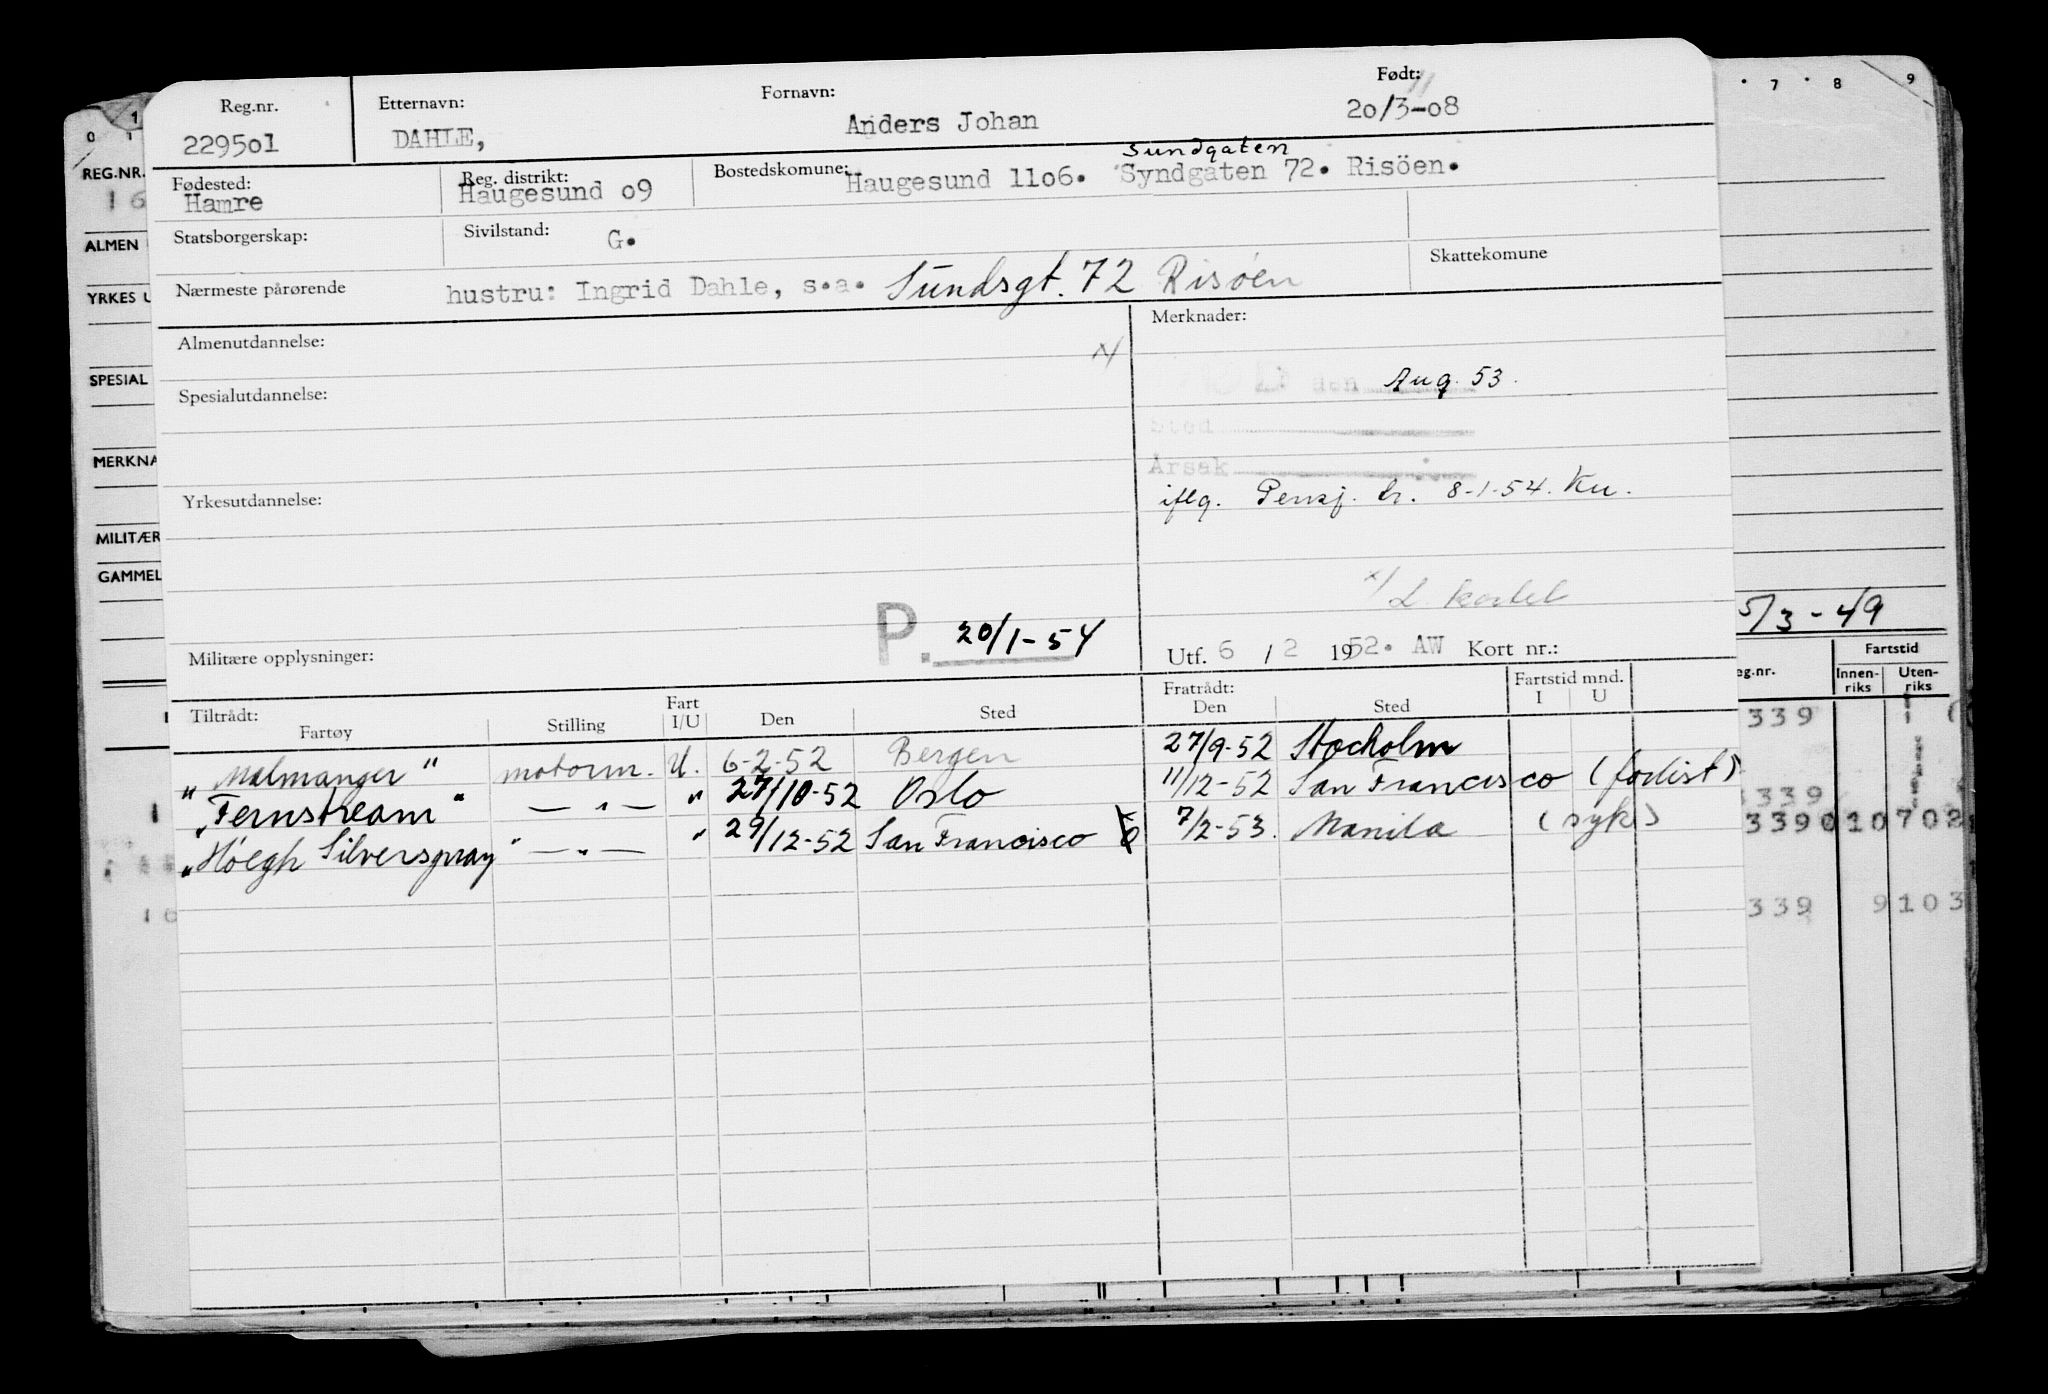 Reg.nr. Etternavn: Fornavn: Født:
229501 DAHLE, Anders Johan 20/3-08
Sundgaten
Fødested: Reg. distrikt: Bostedskomune:
Hamre Haugesund 09 Haugesund 1106. Syndgaten 72. Risöen.
Statsborgerskap: Sivilstand: G. Skattekomune
Nærmeste pårørende hustru: Ingrid Dahle, s.a. Sundsgt. 72 Risøen
Almenutdannelse: x/ Merknader:
Spesialutdannelse: den Aug. 53.
Sted
Årsak
Yrkesutdannelse: iflg. Pensj. br. 8-1-54. Ku.
x/
P. 20/1-54
Militære opplysninger: Utf. 6 / 2 1952. AW Kort nr.:
Tiltrådt: Fratrådt: Fartstid mnd.
Fartøy Stilling Fart I/U Den Sted Den Sted I U
"Malmanger" motorm. U. 6-2-52 Bergen 27/9-52 Stocholm
"Fernstream" — " — " 27/10-52 Oslo 11/12-52 San Francisco (forlist)
"Höegh Silverspray" — " — " 29/12-52 San Francisco 7/2-53. Manila (syk)
0 1
REG.NR.
16
ALMEN
YRKES U
SPESIAL
MERKNA
MILITÆR
GAMMEL
16
7 8 9
5/3-49
eg.nr. Fartstid
Innen-riks Uten-riks
339
339
3390 10 702
339 9103